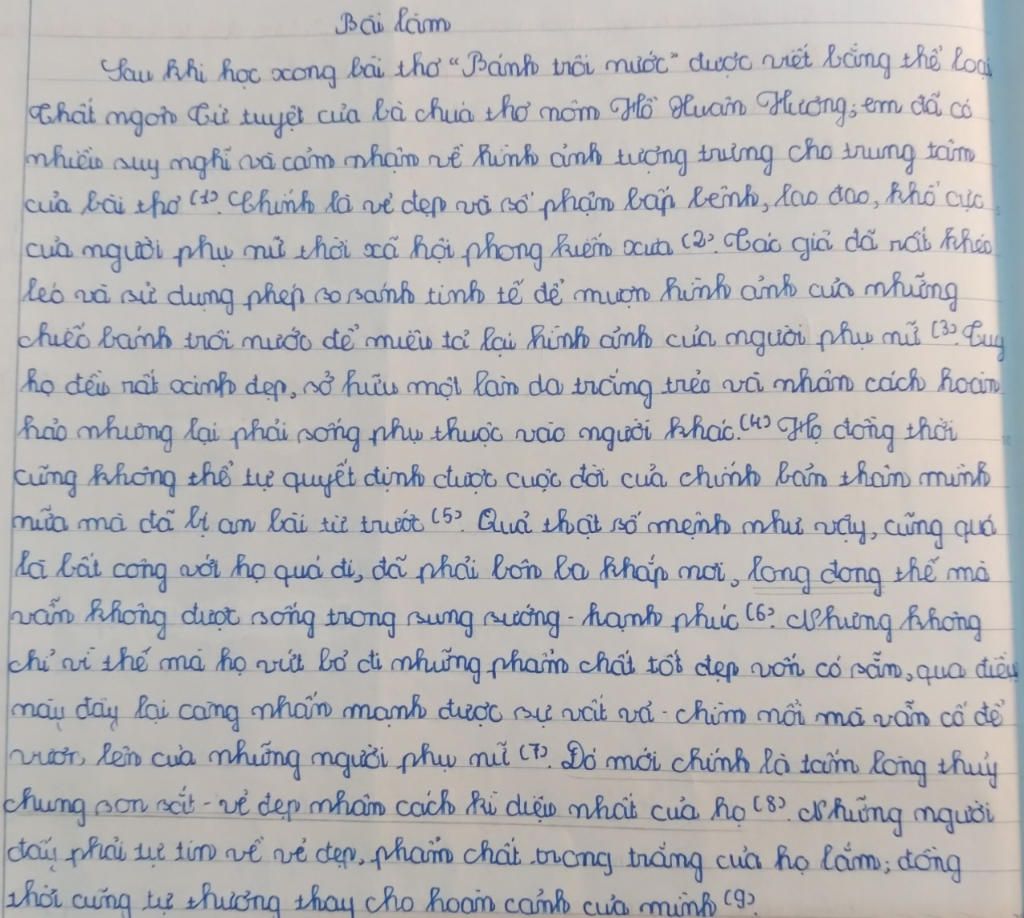 Bài làm
Sau khi học xong bài thơ "Bánh trôi nước" được viết bằng thể loại
thất ngôn tứ tuyệt của bà chúa thơ nôm Hồ Xuân Hương, em đã có
nhiều suy nghĩ và cảm nhận về hình ảnh tượng trưng cho trung tâm
của bài thơ (1). Chính là vẻ đẹp và số phận bấp bênh, lao đao, khổ cực
của người phụ nữ thời xã hội phong kiến xưa (2). Tác giả đã rất khéo
léo và sử dụng phép so sánh tinh tế để mượn hình ảnh của những
chiếc bánh trôi nước để miêu tả lại hình ảnh của người phụ nữ (3). Tuy
họ đều rất xinh đẹp, sở hữu một làn da trắng trẻo và nhân cách hoàn
hảo nhưng lại phải sống phụ thuộc vào người khác. (4) Họ đồng thời
cũng không thể tự quyết định được cuộc đời của chính bản thân mình
nữa mà đã bị an bài từ trước (5). Quả thật số mệnh như vậy, cũng quá
là bất công với họ quá đi, đã phải bôn ba khắp nơi, long đong thế mà
vẫn không được sống trong sung sướng - hạnh phúc (6). Nhưng không
chỉ vì thế mà họ vứt bỏ đi những phẩm chất tốt đẹp vốn có sẵn, qua điều
này đây lại càng nhấn mạnh được sự vất vả - chìm nổi mà vẫn cố để
vươn lên của những người phụ nữ (7). Đó mới chính là tấm lòng thủy
chung son sắt - vẻ đẹp nhân cách kì diệu nhất của họ (8). Những người
đấy phải tự tin về vẻ đẹp, phẩm chất trong trắng của họ lắm; đồng
thời cũng tự thương thay cho hoàn cảnh của mình (9).